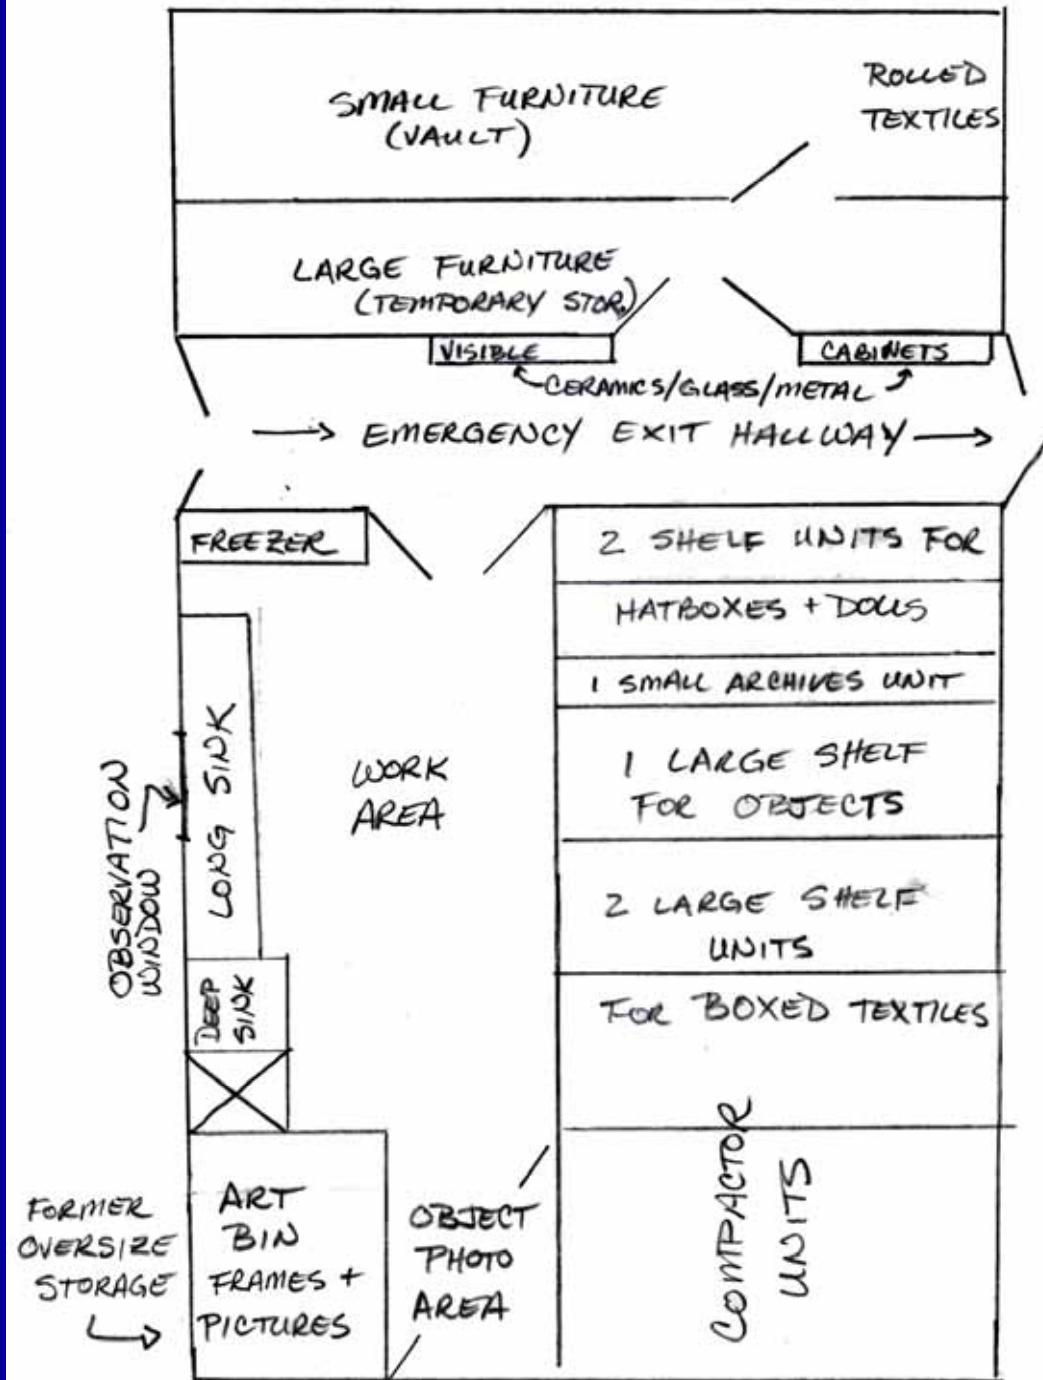 SMALL FURNITURE
(VAULT)
ROLLED
TEXTILES
LARGE FURNITURE
(TEMPORARY STOR.)
VISIBLE
CABINETS
CERAMICS/GLASS/METAL
EMERGENCY EXIT HALLWAY
FREEZER
2 SHELF UNITS FOR
HATBOXES + DOLLS
1 SMALL ARCHIVES UNIT
1 LARGE SHELF
FOR OBJECTS
2 LARGE SHELF
UNITS
FOR BOXED TEXTILES
COMPACTOR
UNITS
WORK
AREA
OBSERVATION
WINDOW
LONG SINK
DEEP
SINK
FORMER
OVERSIZE
STORAGE
ART
BIN
FRAMES +
PICTURES
OBJECT
PHOTO
AREA